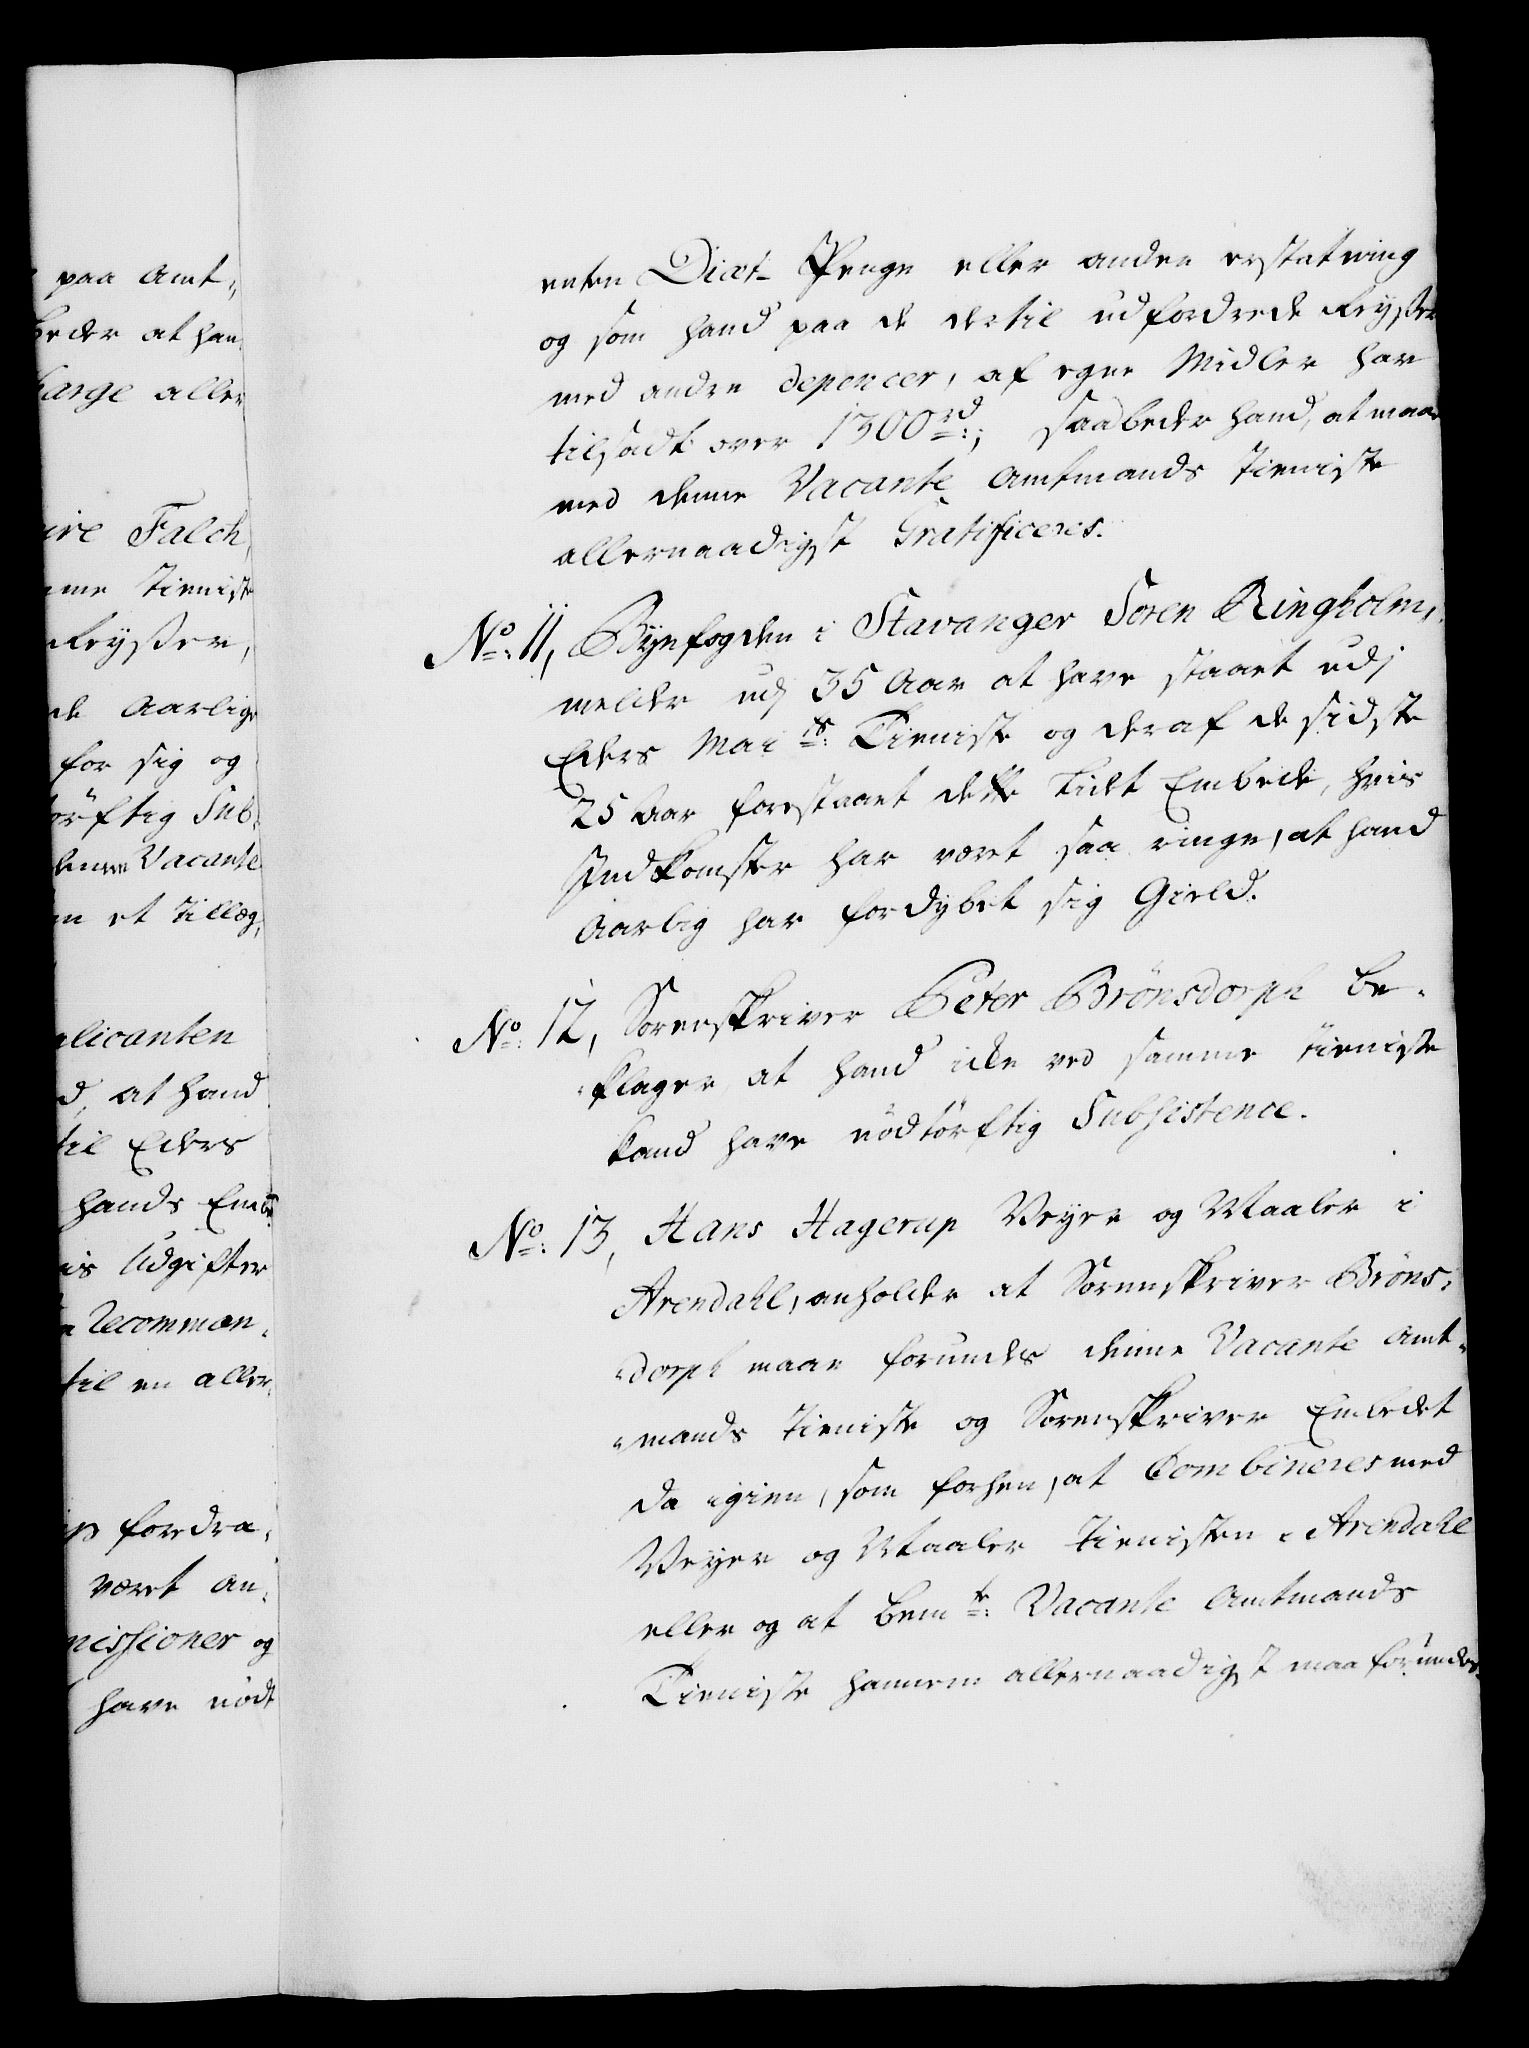 paa Amt,,
beder at han
harge aller
ire Falch,
me Tieniste
Reyser,
de Aarlige
for sig og
törftig Sub,
denne Vacante
en et Tillæg,
plicanten
d, at hand
til Eders
hands Embe
is Udgifter
Recomman,
til en aller,
fordra,
været an,
missioner og
have nödt
enten Diæt Penge eller anden erstatning
og som hand paa de dertil udfordrede Reyser
med andre depencer, af egne Midler har
tilsadt over 1300 rd:; saa beder hand, at maae
med denne Vacante Amtmands Tieniste
allernaadigst Gratificeres.
No: 11, Byefogden i Stavanger Soren Ringholm,
melder udj 35 Aar at have staaet udj
Eders Mai ts: Tieniste og deraf de sidste
25 Aar forestaaet dette lidet Embede, hvis
Indkomster har været saa ringe, at hand
Aarlig har fordybet sig Gield.
No: 12, Sorenskriver Peter Brönsdorph be,
klager, at hand icke ved samme Tieniste
kand have nödtörftig Subsistence.
No: 13, Hans Hagerup Veyer og Maaler i
Arendahl, anholder at Sorenskriver Bröns,
dorph maae forundes denne Vacante Amt,
mands Tieniste og Sorenskriver Embedet
da igien, som forhen, at Combineres med
Veyer og Maaler Tienisten i Arendahl
eller og at bem te: Vacante Amtmands
Tieniste hannem allernaadigst maa forundes.